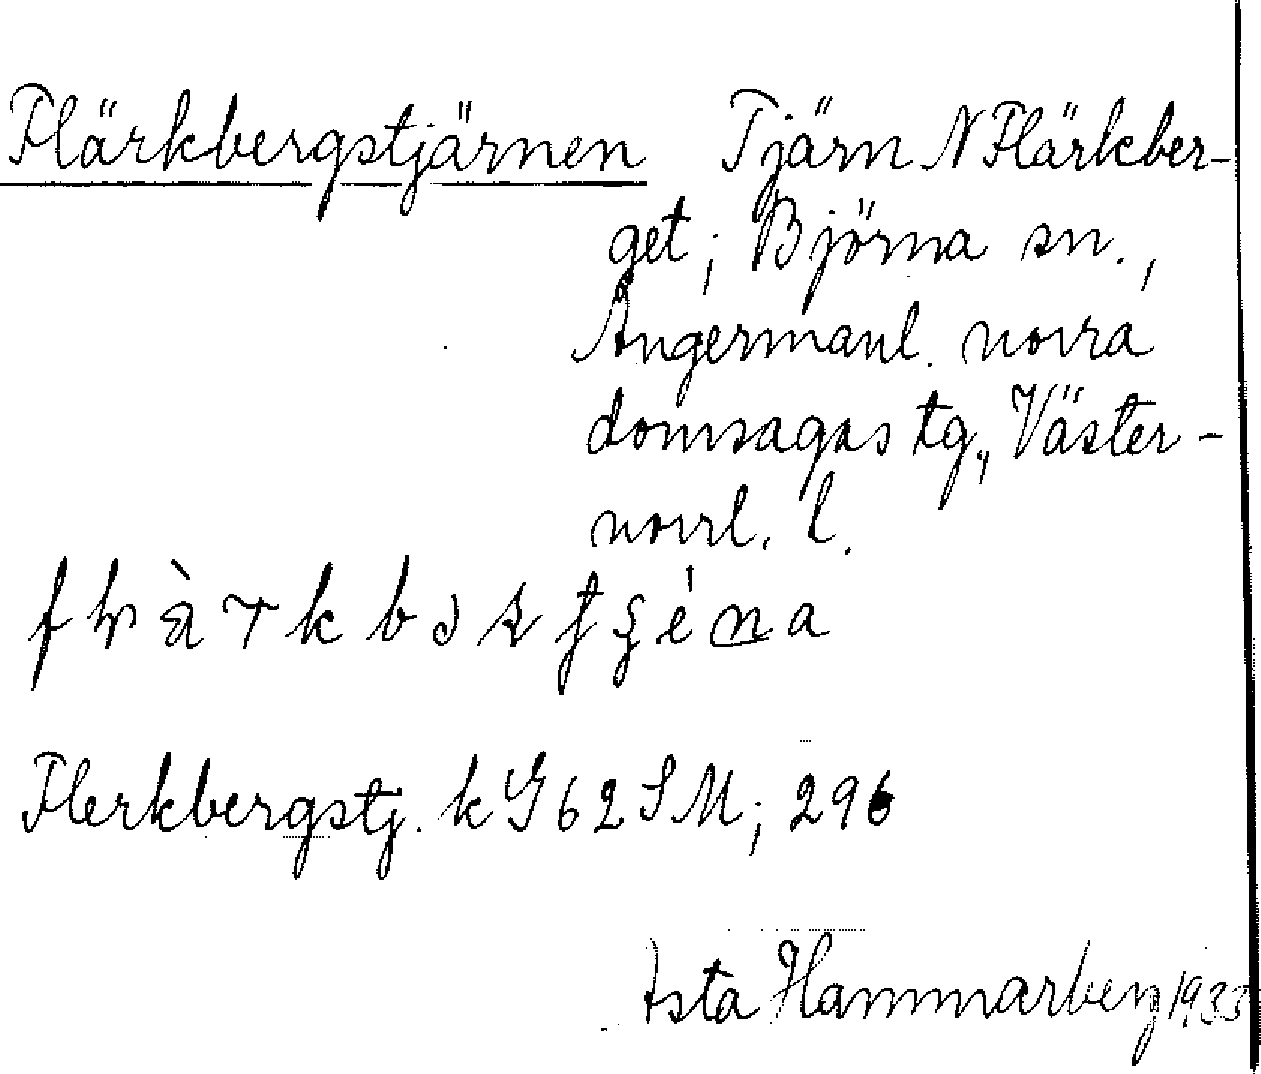 Flärkbergstjärnen Tjärn N Flärkber-
get; Björna sn.,
Ångermanl. norra
domsagas tg., Väster-
norrl. l.
Flerkbergstj. k G 62 SM; 296
Asta Hammarberg 1933